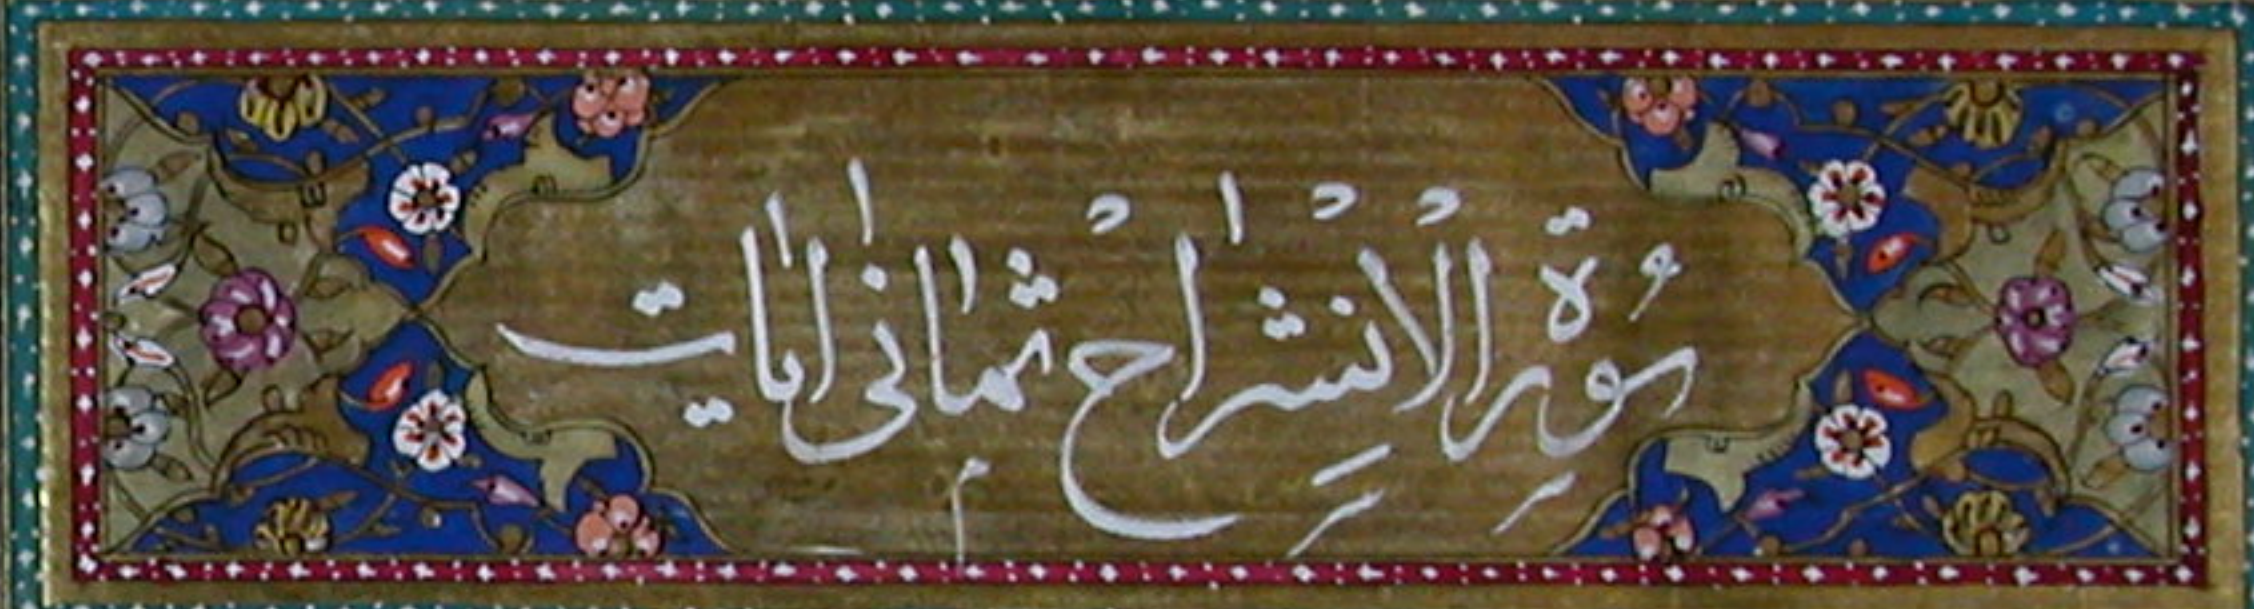 سُورِةُ الْاِنْشِرَاحْ ثَمَانِى اٰيَات